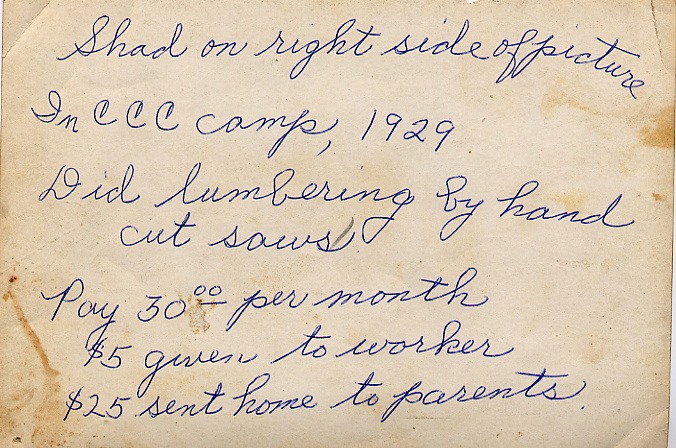 Shad on right side of picture
In CCC camp, 1929
Did lumbering by hand
cut saws
Pay 30⁰⁰ per month
$5 given to worker
$25 sent home to parents.